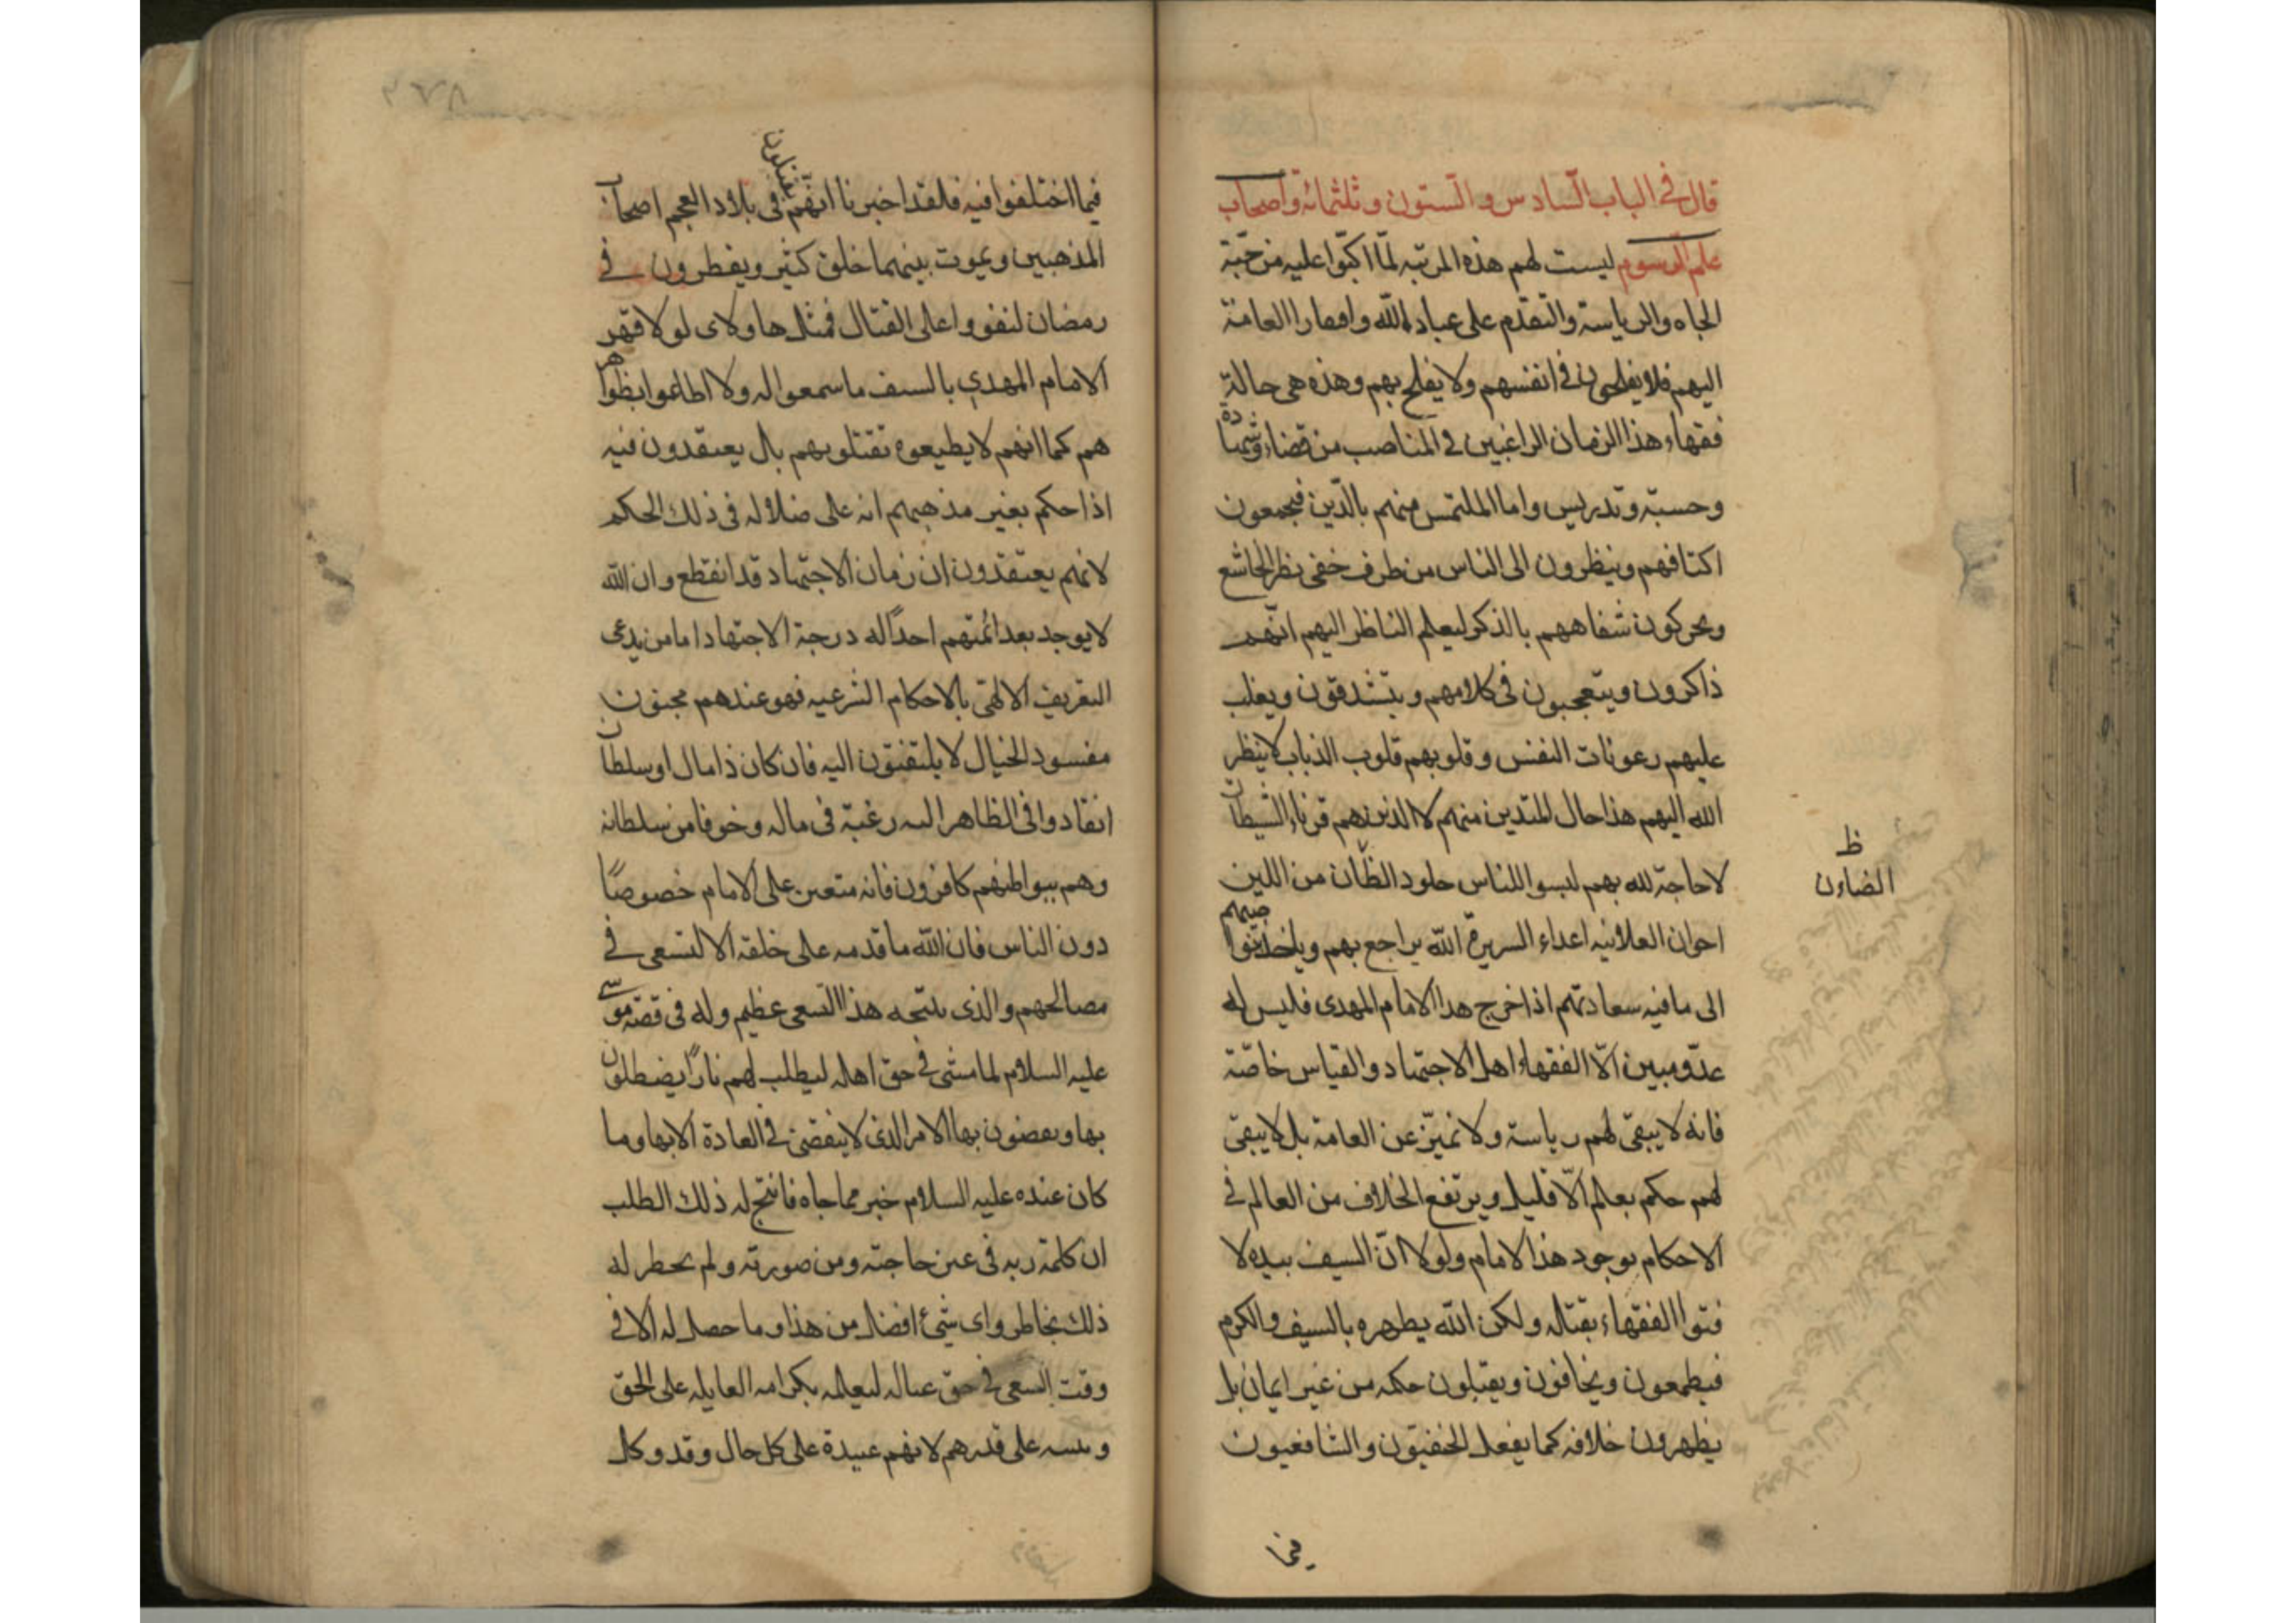 قال في الباب السادس والستون وثلثمائة واصحاب
علم الرسوم ليست لهم هذه المرتبه لمّا اكبّوا عليه من حبّة
الجاه والرياسة والتقدّم على عباد الله وافتقار العامة
اليهم فلا يفلحون في انفسهم ولا يفلح بهم وهذه هي حالة
فقهاء هذا الزمان الراغبين في المناصب من قضاء وشهادة
وحسبة وتدريس واما الملتمس منهم بالدّين فيجمعون
اكتافهم وينظرون الى الناس من طرف خفي نظر الخاشع
ويحركون شفاههم بالذكر ليعلم الناظر اليهم انّهم
ذاكرون ويتعجبون في كلامهم ويتشدقون ويغلب
عليهم رعونات النفس وقلوبهم قلوب الذباب لاينظر
الله اليهم هذا حال المتدين منهم لا الذين هم قرناء الشيطان
لا حاجة لله بهم لبسوا للناس جلود الظان من اللين
ظ
الضاءن
اخوان العلانيه اعداء السريرة الله يراجع بهم وياخذ بنواصيهم
الى ما فيه سعادتهم اذا خرج هدا الامام المهدى فليس له
عدّو مبين الّا الفقهاء اهل الاجتهاد والقياس خاصّة
فانه لا يبقى لهم رياسة ولا تميّز عن العامة بل لا يبقى
لهم حكم بعالم الّا قليل ويرتفع الخلاف من العالم في
الاحكام بوجود هذا الامام ولولا انّ السيف بيده لا
فتوا الفقهاء بقتاله ولكن الله يطهره بالسيف والكرم
فيطمعون ويخافون ويقبلون حكمه من غير ايمان بل
يظهرون خلافه كما يفعل الحنفيّون والشافعيون
فيما
فيما اختلفوا فيه فلقد اخبرنا انهّم يقتتلون في بلاد العجم اصحاب
المذهبين ويموت بينهما خلق كثير ويفطرون في
رمضان لنفووا على القتال فمثل هاولاى لولا قهر
الامام المهدي بالسيف ما سمعوا له ولا اطاعوا بظواهر
هم كما انهم لا يطيعوه تقتلوبهم بال يعتقدون فيه
اذا حكم بغير مذهبهم انه على ضلاله فى ذلك الحكم
لانهم يعتقدون ان زمان الاجتهاد قد انقطع وان الله
لايوجد بعد ائمتهم احدًا له درجة الاجتهاد اما من يدعى
التعريف الالهىّ بالاحكام الشرعيه فهو عندهم مجنون
مفسود الخيال لا يلتفتون اليه فان كان ذا مال اوسلطان
انقادوا فى الظاهر اليه رغبة فى ماله وخوفا من سلطانه
وهم ببواطنهم كافرون فانه متعين على الامام خصوصًا
دون الناس فان الله ما قدمه على خلقه الا لتسعى في
مصالحهم والذى ينتجه هذا السعى عظيم وله فى قصّة موسى
عليه السلام لما مشى في حق اهله ليطلب لهم نارًا يصطلون
بها ويقضون بها الامر الذى لا ينقضى في العادة الا بها وما
كان عنده عليه السلام خبر مما جاه فانتج له ذلك الطلب
ان كلمة ربه فى عين حاجته ومن صورته ولم يحطر له
ذلك بخاطر واى شئ افضل من هذا وما حصل له الا في
وقت السعى في حق عياله ليعلمه بكرامه العايله على الحق
على قدرهم لانهم عبيدة على كل حال وقد وكل